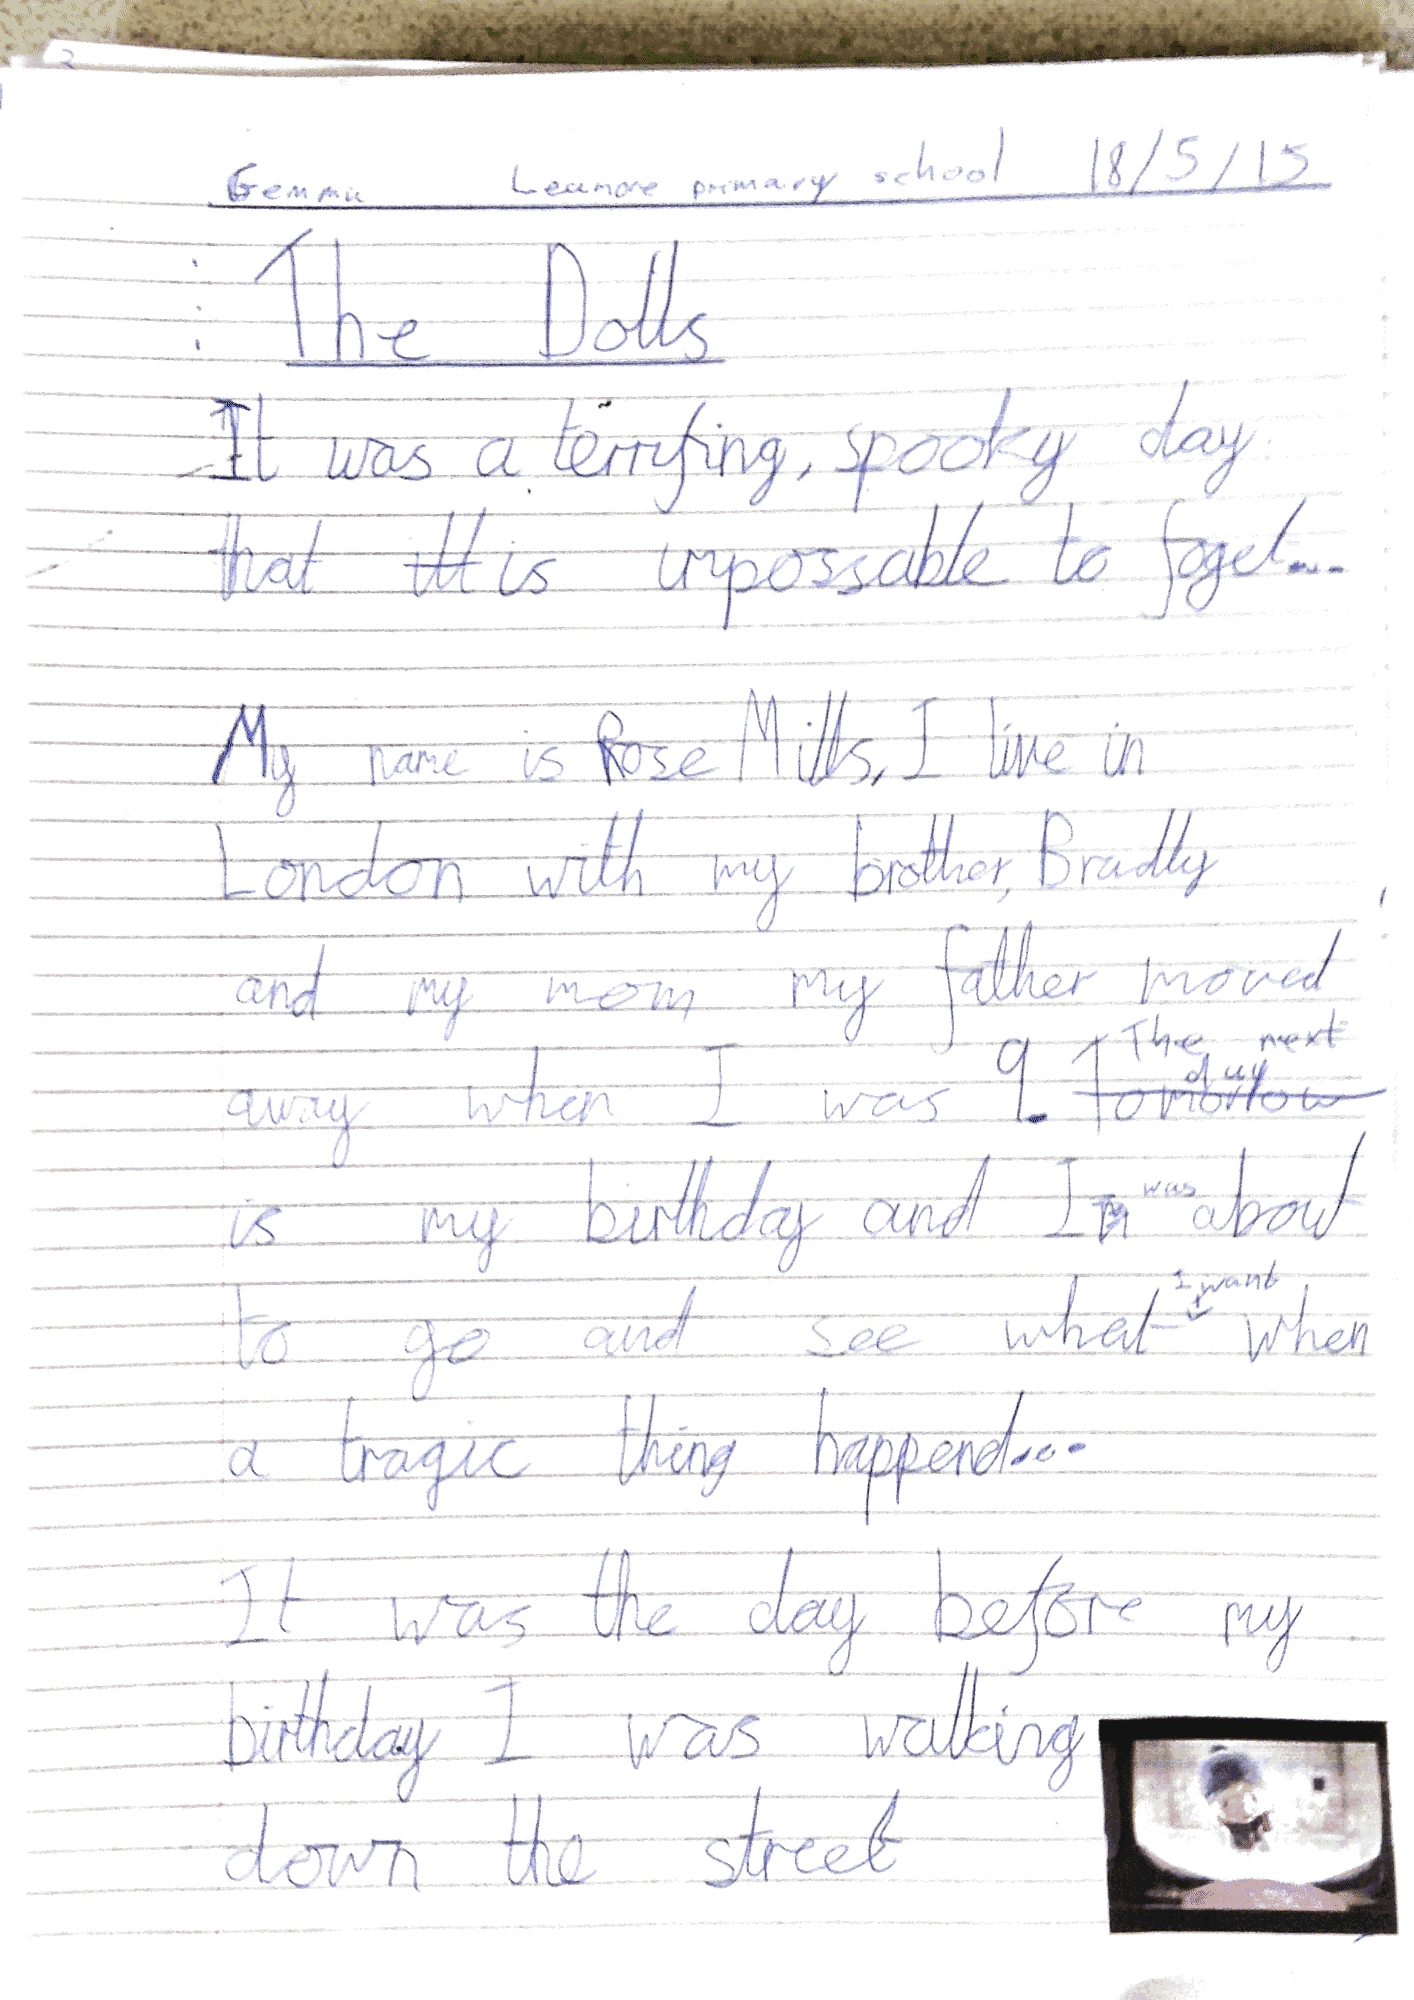 2
Gemma Leamore primary school 18/5/15
The Dolls
It was a terrifing, spooky day
that it is impossable to foget...
My name is Rose Mills, I live in
London with my brother, Bradly
and my mom my father moved
away when I was 9. The next day Tomorrow
is my birthday and I'm was about
to go and see what I want when
a tragic thing happend...
It was the day before my
birthday I was walking
down the street